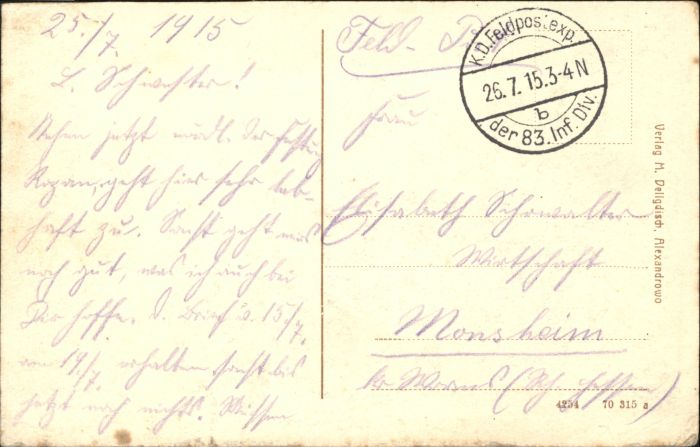 25./7. 1915
L. Schwester!
Stehen jetzt nördl. der Festung
Rozan, geht hier sehr leb-
haft zu. Sonst geht mirs
noch gut, was ich auch bei
Dir hoffe. D. Brief v. 15/7.
vom 19./7. erhalten, sonst bis
jetzt noch nichts. Müssen
Feld-
K.D. Feldpostexp.
26.7.15.3-4N
b
der 83. Inf. Div.
Frau
Elisabeth Schwalter
Wirtschaft
Monsheim
b/ Worms (Rh. Hessen)
Verlag M. Deligdisch, Alexandrowo
4254 70 315 a